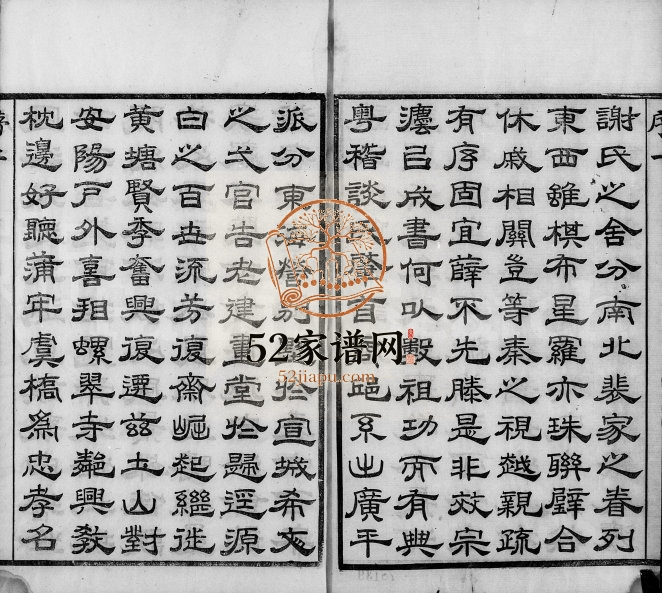 謝氏之舍分南北裴家之眷列
東西雖棋布星羅亦珠聯璧合
休戚相關豈等秦之視越親疏
有序固宜薛不先滕是非效宗
灋已成書何以祖功而有典
粵稽談氏肇邑系出廣平
派分東海於宣城希文
之弋官告老建畫堂於歸逕源
白之百世流芳復齋崛起繼徙
黃塘賢季奮興復遷茲土山對
安陽戶外喜螺翠寺鄰興教
枕邊好聽蒲牢虞橋為忠孝名
52家谱网
52jiapu.com